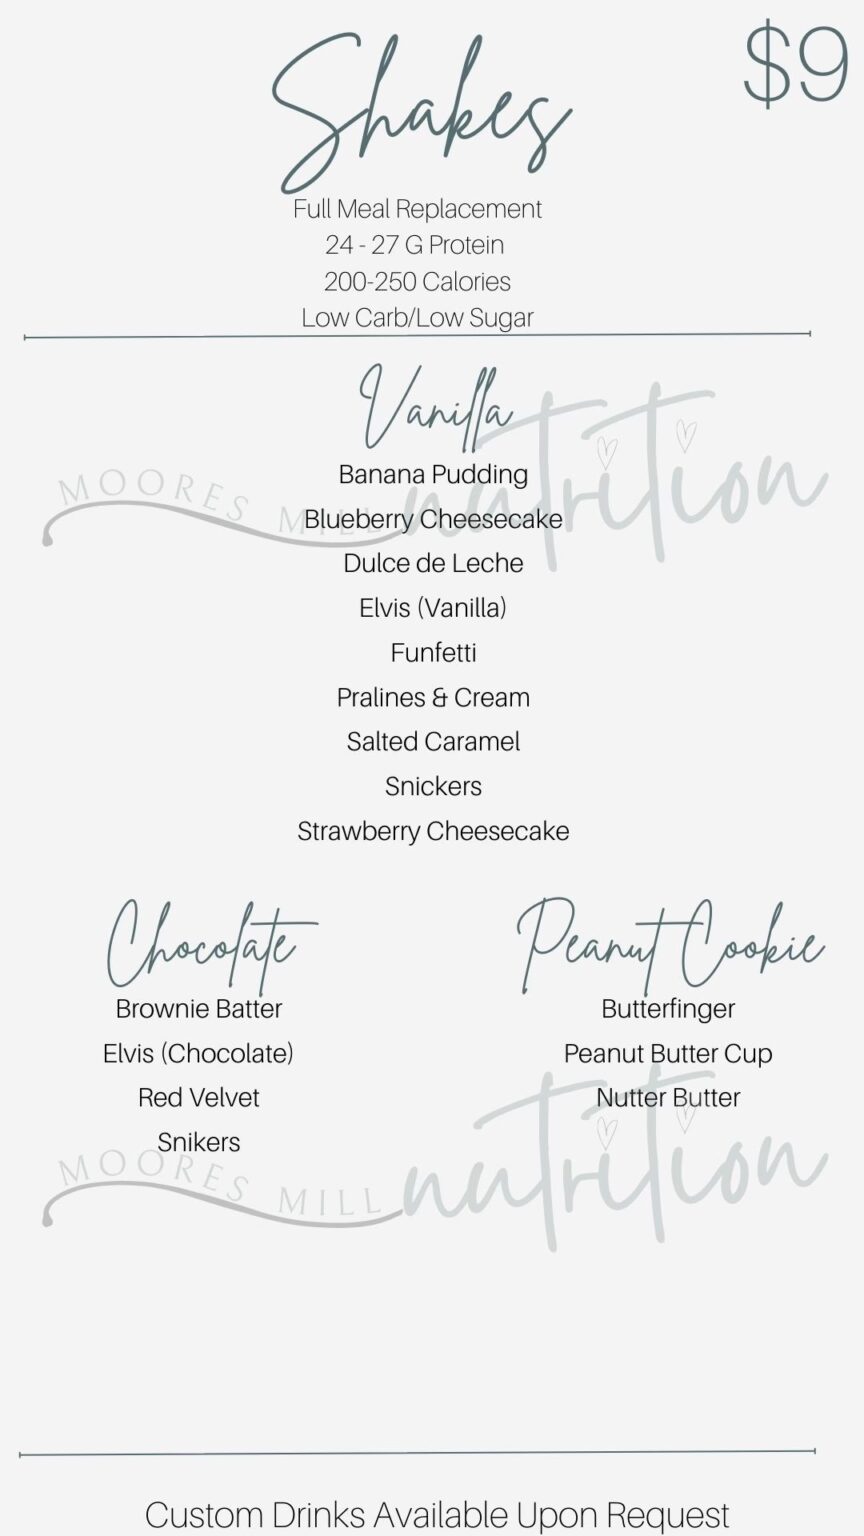 $9
Shakes
Full Meal Replacement
24 - 27 G Protein
200-250 Calories
Low Carb/Low Sugar
Vanilla
Banana Pudding
Blueberry Cheesecake
Dulce de Leche
Elvis (Vanilla)
Funfetti
Pralines & Cream
Salted Caramel
Snickers
Strawberry Cheesecake
MOORES MILL nutrition
Chocolate
Brownie Batter
Elvis (Chocolate)
Red Velvet
Snikers
Peanut Cookie
Butterfinger
Peanut Butter Cup
Nutter Butter
MOORES MILL nutrition
Custom Drinks Available Upon Request